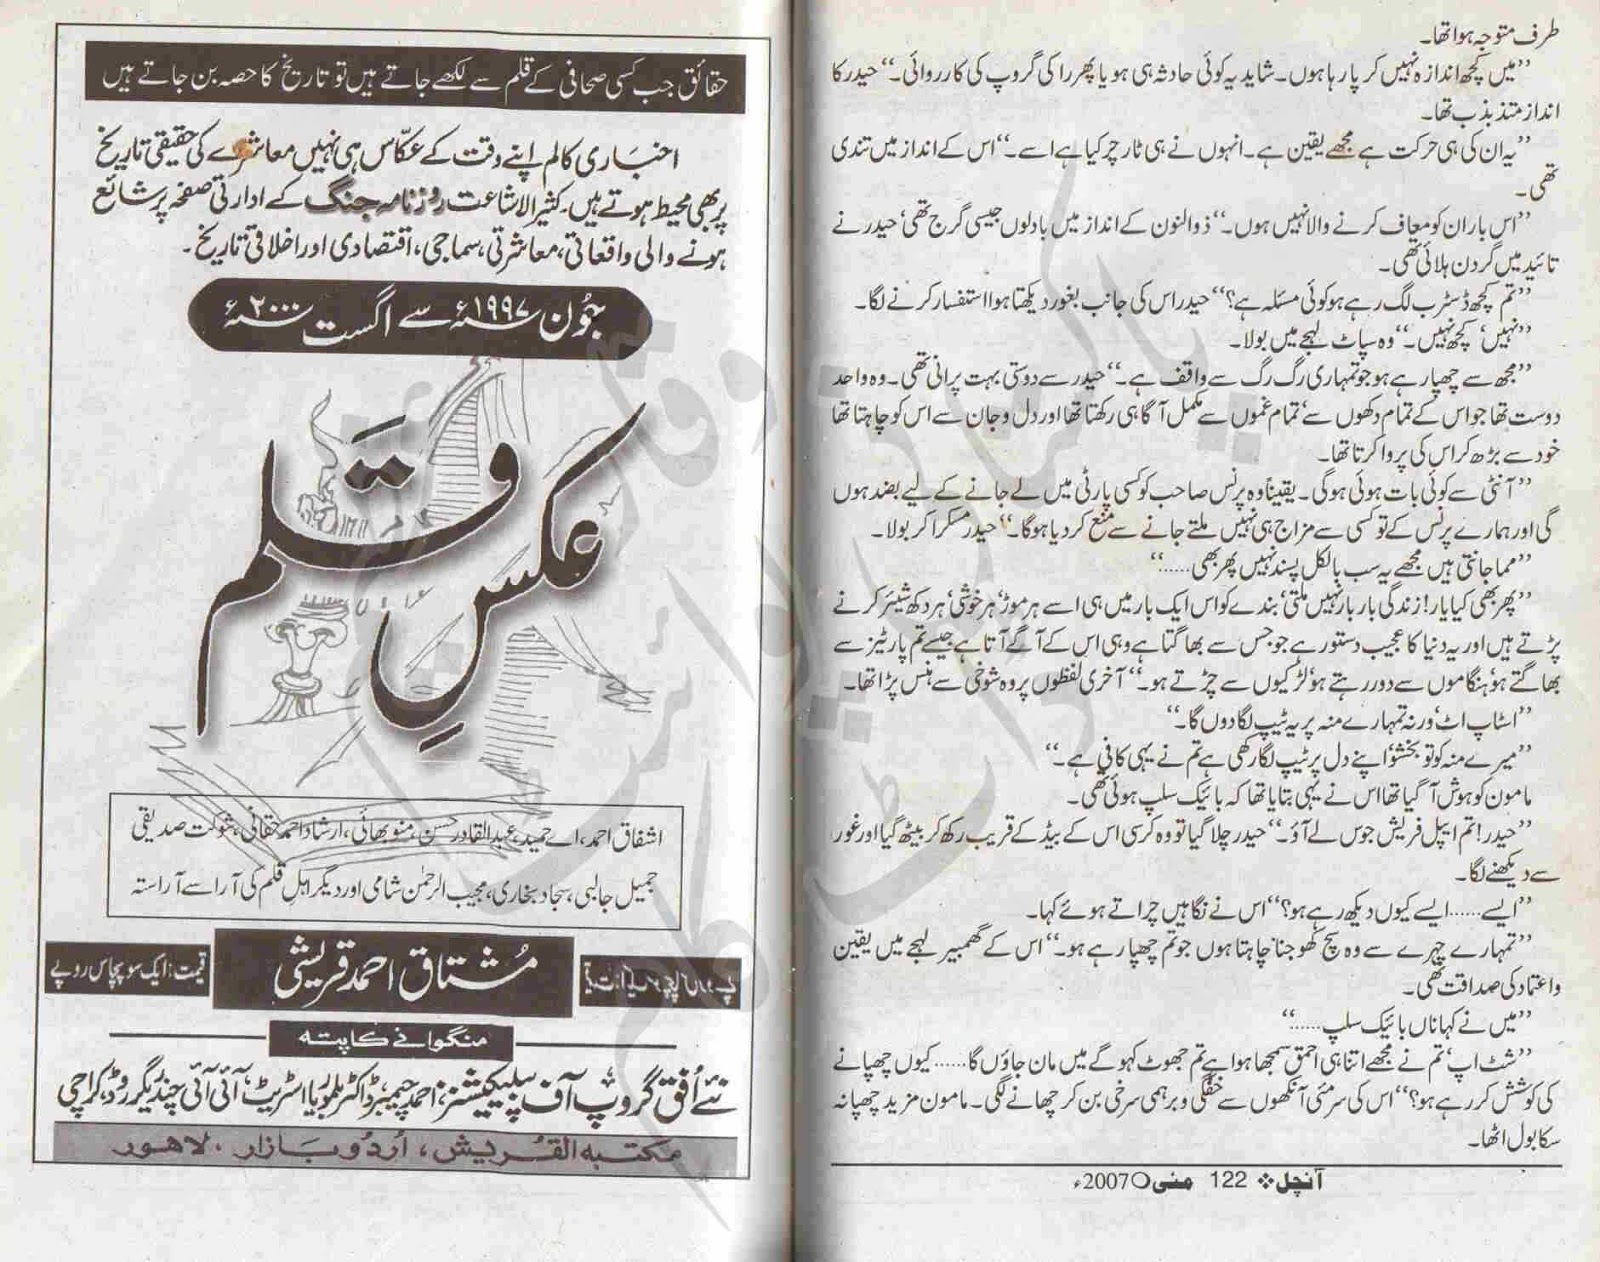 طرف متوجہ ہوا تھا۔
’’میں کچھ اندازہ نہیں کر پا رہا ہوں۔ شاید یہ کوئی حادثہ ہی ہو یا پھر را کی گروپ کی کارروائی۔‘‘ حیدر کا
انداز متذبذب تھا۔
’’یہ ان کی ہی حرکت ہے مجھے یقین ہے۔ انہوں نے ہی ٹارچر کیا ہے اسے۔‘‘ اس کے انداز میں تندی
تھی۔
’’اس بار ان کو معاف کرنے والا نہیں ہوں۔‘‘ ذوالنون کے انداز میں بادلوں جیسی گرج تھی‘ حیدر نے
تائید میں گردن ہلائی تھی۔
’’تم کچھ ڈسٹرب لگ رہے ہو کوئی مسئلہ ہے؟‘‘ حیدر اس کی جانب بغور دیکھتا ہوا استفسار کرنے لگا۔
’’نہیں‘ کچھ نہیں۔‘‘ وہ سپاٹ لہجے میں بولا۔
’’مجھ سے چھپا رہے ہو جو تمہاری رگ رگ سے واقف ہے۔‘‘ حیدر سے دوستی بہت پرانی تھی۔ وہ واحد
دوست تھا جو اس کے تمام دکھوں سے‘ تمام غموں سے مکمل آگاہی رکھتا تھا اور دل و جان سے اس کو چاہتا تھا
خود سے بڑھ کر اس کی پروا کرتا تھا۔
’’آنٹی سے کوئی بات ہوئی ہوگی۔ یقیناً وہ پرنس صاحب کو کسی پارٹی میں لے جانے کے لیے بضد ہوں
گی اور ہمارے پرنس کے تو کسی سے مزاج ہی نہیں ملتے جانے سے منع کر دیا ہوگا۔‘‘ حیدر مسکرا کر بولا۔
’’مما جانتی ہیں مجھے یہ سب بالکل پسند نہیں پھر بھی......‘‘
’’پھر بھی کیا یار! زندگی بار بار نہیں ملتی‘ بندے کو اس ایک بار میں ہی اسے ہر موڑ‘ ہر خوشی‘ ہر دکھ شیئر کرنے
پڑتے ہیں اور یہ دنیا کا عجیب دستور ہے جو جس سے بھاگتا ہے وہی اس کے آگے آتا ہے جیسے تم پارٹیز سے
بھاگتے ہو‘ ہنگاموں سے دور رہتے ہو‘ لڑکیوں سے چڑتے ہو۔‘‘ آخری لفظوں پر وہ شوخی سے ہنس پڑا تھا۔
’’اسٹاپ اٹ‘ ورنہ تمہارے منہ پر یہ ٹیپ لگا دوں گا۔‘‘
’’میرے منہ کو تو بخشو‘ اپنے دل پر ٹیپ لگا رکھی ہے تم نے یہی کافی ہے۔‘‘
مامون کو ہوش آ گیا تھا اس نے یہی بتایا تھا کہ بائیک سلپ ہوئی تھی۔
’’حیدر! تم ایپل فریش جوس لے آؤ۔‘‘ حیدر چلا گیا تو وہ کرسی اس کے بیڈ کے قریب رکھ کر بیٹھ گیا اور غور
سے دیکھنے لگا۔
’’ایسے...... ایسے کیوں دیکھ رہے ہو؟‘‘ اس نے نگاہیں چراتے ہوئے کہا۔
’’تمہارے چہرے سے وہ سچ کھوجنا چاہتا ہوں جو تم چھپا رہے ہو۔‘‘ اس کے گھمبیر لہجے میں یقین
و اعتماد کی صداقت تھی۔
’’میں نے کہا ناں بائیک سلپ......‘‘
’’شٹ اپ‘ تم نے مجھے اتنا ہی احمق سمجھا ہوا ہے تم جھوٹ کہو گے میں مان جاؤں گا...... کیوں چھپانے
کی کوشش کر رہے ہو؟‘‘ اس کی سرمئی آنکھوں سے خفگی و برہمی سرخی بن کر چھانے لگی۔ مامون مزید چھپا نہ
سکا بول اٹھا۔
آنچل ❖ 122 مئی O 2007ء
حقائق جب کسی صحافی کے قلم سے لکھے جاتے ہیں تو تاریخ کا حصہ بن جاتے ہیں
اخباری کالم اپنے وقت کے عکّاس ہی نہیں معاشرے کی حقیقی تاریخ
پر بھی محیط ہوتے ہیں۔ کثیر الاشاعت روزنامہ جنگ کے ادارتی صفحہ پر شائع
ہونے والی واقعاتی، معاشرتی، سماجی، اقتصادی اور اخلاقی تاریخ۔
جون ۱۹۹۷ء سے اگست ۲۰۰۰ء
عکسِ قلم
اشفاق احمد، اے حمید، عبدالقادر حسن، منو بھائی، ارشاد احمد حقانی، شوکت صدیقی
جمیل جالبی، سجاد بخاری، مجیب الرحمٰن شامی اور دیگر اہلِ قلم کی آرا سے آراستہ
مشتاق احمد قریشی
قیمت: ایک سو پچاس روپے
منگوانے کا پتہ
نئے اُفق گروپ آف پبلیکیشنز، احمد چیمبر ڈاکٹر بلموریا اسٹریٹ، آئی آئی چندریگر روڈ، کراچی
مکتبہ القریش، اُردو بازار، لاہور